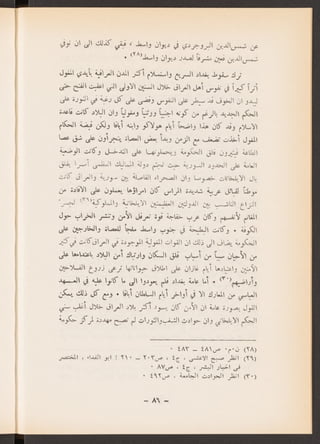 عن شمس‌الدين البروجردي في ديوان واسط ، فبقي كذلك الى ان توفي
شمس‌الدين فعين مشرفاً لصدر ديوان واسط(٢٨) •
ترك سقوط بغداد السريع واستسلام أكثر المدن العراقية بأيدي المغول
أثراً كبيراً في نفوس أهل العراق خلال السنين الاولى التي اعقبت الفتح حتى
ليبدو ان الخوف قد سيطر على النفوس وقضى على كل رغبة في الثورة على
الحكم الجديد بالرغم من كونه اجنبياً ووثنياً ومغولياً وان البلاد كانت قاعدة
الاسلام وقد كان هذا واضحاً أيام هولاكو وابنه أباقا ولكن قبضة الحكام
المغول أخذت تضعف مع الزمن وبدأ بعض العصاة يتجرأون على شق عصا
الطاعة فيثيرون قلق الحكومة ويحملونها على التدخل وكانت الوضعية
العامة على الحدود السورية حيث تجثم دولة المماليك العظمى أمراً يقلق
بال الايلخانات خصوصا وان الصحراء الفاصلة بين سورية والعراق كانت
موطناً لقبائل عربية شديدة المراس كان امراؤها يعملون على الافادة من
النزاع الناشب بين الدولتين العظيمتين الايلخانية والمملوكية(٢٩)
المغانم لأنفسهم وكان عرب خفاجة قوة تعرقل الأمن وتنشر الخراب حول
الكوفة • وكانت البطيحة في جنوب واسط ملجأ للعصاة والخارجين على
الحكومة يضاف الى ذلك ان القوات المغولية الموجودة في العراق كانت في كثير
من الأحيان سبباً من أسباب قلق السكان وارتباك أمر البلاد باعتدائها على
الآمنين واعتيادها أيام غازان على اطلاق حيواناتها ترعى زروع الفلاحين
وأراضيهم(٣٠) • أما عامة بغداد فلم يعودوا الى ما كانوا عليه في العهد
العباسي من المعارك الا في أواخر أيام السلطان أباقا • ومع كل ذلك يمكن
القول بصورة عامة ان الأمن كان يسود أكثر بلاد العراق خلال أغلب سني
الحكم الايلخاني وان حوادث الشغب والثورات لم تصبح مهددة لمركز حكومة
(٢٨) ن٠م٠ ص٤٨١ – ٤٨٣ •
(٢٩) انظر صبح الاعشى ، ج٤ ، ص٢٠٣ – ٢١٠ ؛ ابو الفداء ، المختصر
في اخبار البشر ، ج٤ ، ص٨٧ •
(٣٠) انظر الحوادث الجامعة ، ص٤٦٢ •
– ٨٦ –